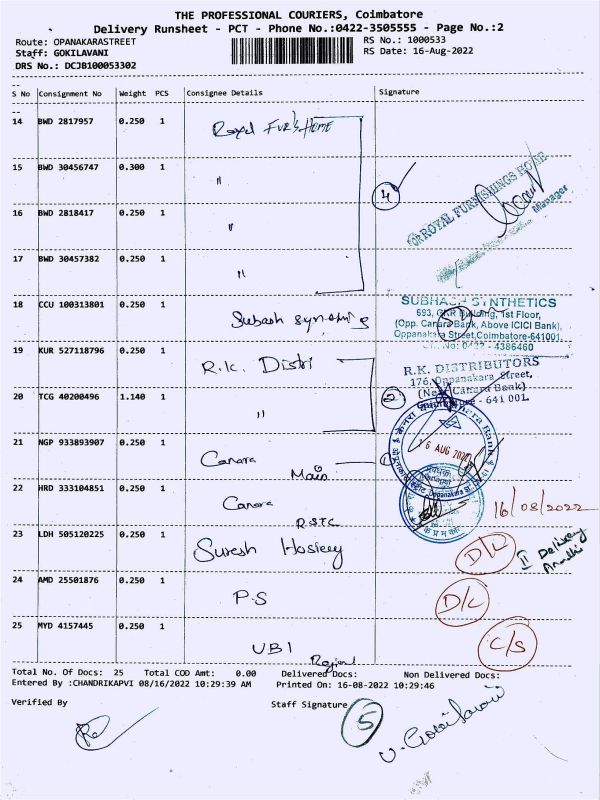 THE PROFESSIONAL COURIERS, Coimbatore
Delivery Runsheet - PCT - Phone No.:0422-3505555 - Page No.:2
Route: OPANAKARASTREET
RS No.: 1000533
Staff: GOKILAVANI
RS Date: 16-Aug-2022
DRS No.: DCJB100053302
S No Consignment No Weight PCS Consignee Details Signature
14 BWD 2817957 0.250 1 Royal Fur's Home
15 BWD 30456747 0.300 1 "
4
FOR ROYAL FURNISHINGS HOME
Manager
16 BWD 2818417 0.250 1 "
17 BWD 30457382 0.250 1 "
18 CCU 100313801 0.250 1 Subash
SUBHASH SYNTHETICS
693, GKR Building, 1st Floor,
(Opp. Canara Bank, Above ICICI Bank),
Oppanakara Street, Coimbatore-641001.
0422 - 4386460
19 KUR 527118796 0.250 1 R.K. Distri
R.K. DISTRIBUTORS
176, Oppanakara Street,
(Near Canara Bank)
- 641 001.
20 TCG 40200496 1.140 1 "
2
21 NGP 933893907 0.250 1 Canara
Main
16 AUG
22 HRD 333104851 0.250 1 Canara
RSTC
16/08/2022
23 LDH 505120225 0.250 1 Suresh Hosiery
D/L
II Delivery
24 AMD 25501876 0.250 1 P.S
D/L
25 MYD 4157445 0.250 1 UBI
C/S
Total No. Of Docs: 25 Total COD Amt: 0.00 Delivered Docs: Non Delivered Docs:
Entered By :CHANDRIKAPVI 08/16/2022 10:29:39 AM Printed On: 16-08-2022 10:29:46
Verified By
Staff Signature
5